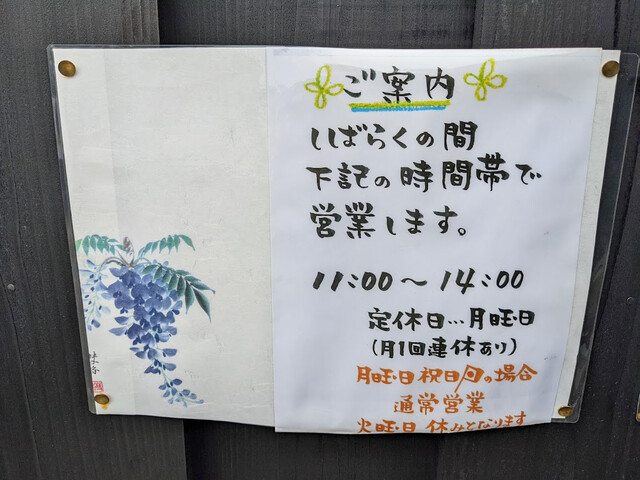 ご案内
しばらくの間
下記の時間帯で
営業します。
11:00～14:00
定休日…月曜日
(月1回連休あり)
月曜日祝日の場合
通常営業
火曜日休みとなります